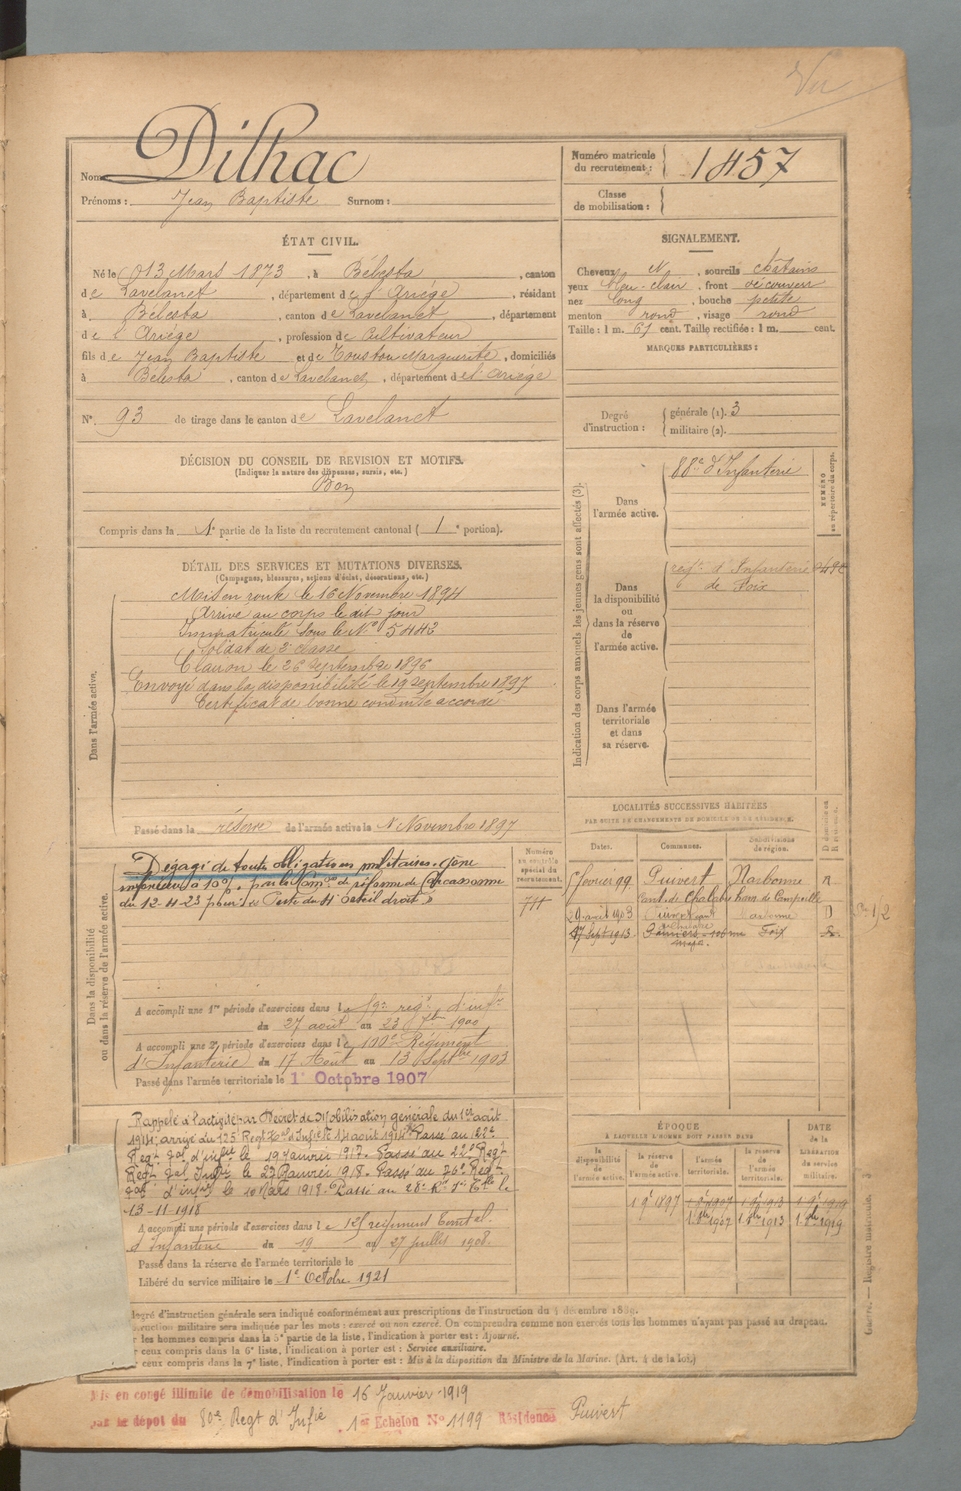 Vu
Nom Dilhac
Prénoms : Jean Baptiste Surnom :
Numéro matricule du recrutement : 1457
Classe de mobilisation :
ÉTAT CIVIL.
Né le 13 Mars 1873, à Bélesta, canton
de Lavelanet, département de l'Ariège, résidant
à Bélesta, canton de Lavelanet, département
de l'Ariège, profession de Cultivateur
fils de Jean Baptiste et de Toustou Marguerite, domiciliés
à Bélesta, canton de Lavelanet, département de l'Ariège
N° 93 de tirage dans le canton de Lavelanet
SIGNALEMENT.
Cheveux N, sourcils châtains
yeux bleu-clair, front découvert
nez long, bouche petite
menton rond, visage rond
Taille : 1 m. 61 cent. Taille rectifiée : 1 m. cent.
MARQUES PARTICULIÈRES :
Degré d'instruction : générale (1). 3
militaire (2).
DÉCISION DU CONSEIL DE REVISION ET MOTIFS.
(Indiquer la nature des dispenses, sursis, etc.)
Bon
Compris dans la 1e partie de la liste du recrutement cantonal (1e portion).
DÉTAIL DES SERVICES ET MUTATIONS DIVERSES.
(Campagnes, blessures, actions d'éclat, décorations, etc.)
Dans l'armée active.
Mis en route le 16 Novembre 1894
Arrivé au corps le dit jour
Immatriculé sous le N° 5442
Soldat de 2e classe
Clairon le 26 septembre 1896
Envoyé dans la disponibilité le 19 septembre 1897
Certificat de bonne conduite accordé
Passé dans la réserve de l'armée active le 1r Novembre 1897
Indication des corps auxquels les jeunes gens sont affectés (3).
NUMÉRO au répertoire du corps.
Dans l'armée active. 88e d'Infanterie
Dans la disponibilité ou dans la réserve de l'armée active.
régt d'Infanterie
de Foix
Dans l'armée territoriale et dans sa réserve.
Dans la disponibilité ou dans la réserve de l'armée active.
Numéro au contrôle spécial du recrutement.
Dégagé de toutes obligations militaires.
inférieur à 10% par la Comon de réforme de Carcassonne
du 12-4-23 pour
A accompli une 1re période d'exercices dans le 59e régt d'inf
du 27 août au 23 7bre 1900
A accompli une 2e période d'exercices dans le 100e Régiment
d'Infanterie du 17 Août au 13 Septbre 1903
Passé dans l'armée territoriale le 1r Octobre 1907
LOCALITÉS SUCCESSIVES HABITÉES
PAR SUITE DE CHANGEMENTS DE DOMICILE OU DE RÉSIDENCE.
Dates. Communes. Subdivisions de région.
février 99 Puivert Narbonne R
cant. de Chalabre
29 août 1903 Puivert Narbonne D
17 Sept 1913 Foix R
Rappelé à l'activité par Décret de Mobilisation générale du 1er août
1914; arrivé du 125e Regt Tal d'Infie le 14 août 1914. Passé au 122e
Regt Tal d'infie le 19 janvier 1917. Passé au 22e Regt
Tal Infie le 23 Janvier 1918. Passé au 76e Regt
Tal d'infie le 10 Mars 1918. Passé au le
13-11-1918
A accompli une période d'exercices dans le 125 régiment Territ al.
d'Infanterie du 19 au 27 juillet 1908.
Passé dans la réserve de l'armée territoriale le
Libéré du service militaire le 1r Octobre 1921
ÉPOQUE
À LAQUELLE L'HOMME DOIT PASSER DANS
DATE de la LIBÉRATION du service militaire.
la disponibilité de l'armée active.
la réserve de l'armée active.
l'armée territoriale.
la réserve de l'armée territoriale.
1 9e 1897 1 9e 1907 1 9e 1913 1 9e 1919
1 8bre 1907 1 8bre 1913 1 8bre 1919
degré d'instruction générale sera indiqué conformément aux prescriptions de l'instruction du 4 décembre 1889.
instruction militaire sera indiquée par les mots : exercé ou non exercé. On comprendra comme non exercés tous les hommes n'ayant pas passé au drapeau.
r les hommes compris dans la 5e partie de la liste, l'indication à porter est : Ajourné.
r ceux compris dans la 6e liste, l'indication à porter est : Service auxiliaire.
r ceux compris dans la 7e liste, l'indication à porter est : Mis à la disposition du Ministre de la Marine. (Art. 4 de la loi.)
Mis en congé illimité de démobilisation le 16 Janvier 1919
par le dépôt du 80e Regt d'Infie 1er Echelon N° 1199 Résidence Puivert